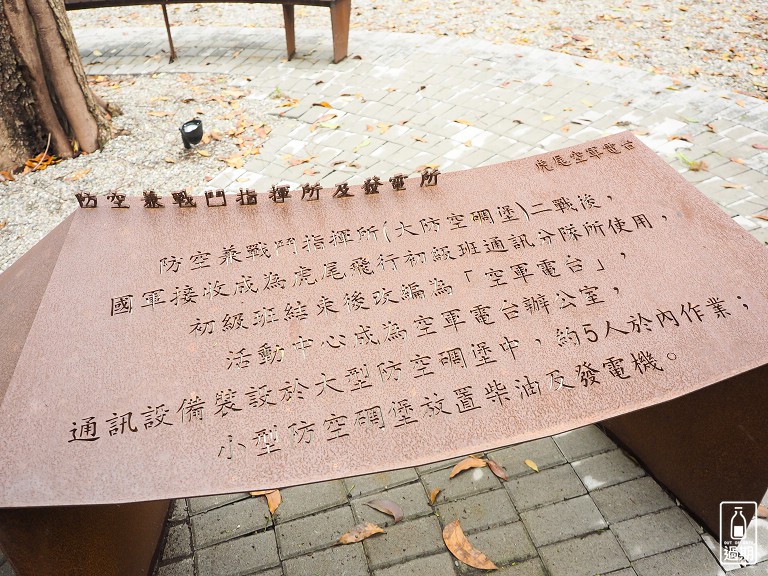 防空兼戰鬥指揮所及發電所
虎尾空軍電台
防空兼戰鬥指揮所(大防空碉堡)二戰後，
國軍接收成為虎尾飛行初級班通訊分隊所使用，
初級班結束後改編為「空軍電台」，
活動中心成為空軍電台辦公室，
通訊設備裝設於大型防空碉堡中，約5人於內作業；
小型防空碉堡放置柴油及發電機。
OUT OF DATE
過期